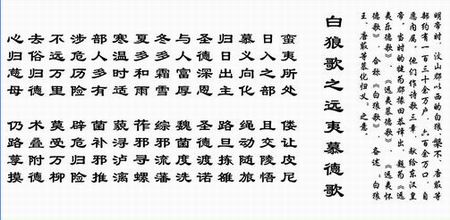 明帝时，汶山郡以西的白狼、槃木、唐菆等
部约有一百三十余万户，六百余万口，自
愿内属。他们作诗歌三章，献给东汉皇
帝，当时的犍为郡掾田恭译出，题为《远
夷乐德歌》、《远夷慕德歌》、《远夷怀
德歌》，合称《白狼歌》，各述“白狼
王、唐菆等慕化归义”之意。
白狼歌之远夷慕德歌
蛮夷所处 偻让皮尼
日入之部 且交陵悟
慕义向化 绳动随旅
归日出主 路旦拣雒
圣德深恩 圣德渡诺
与人富厚 魏菌度洗
冬多霜雪 综邪流藩
夏多和雨 莋邪寻螺
寒温时适 藐浔泸漓
部人多有 菌补邪推
涉危历险 辟危归险
不远万里 莫受万柳
去俗归德 术叠附德
心归慈母 仍路孳摸